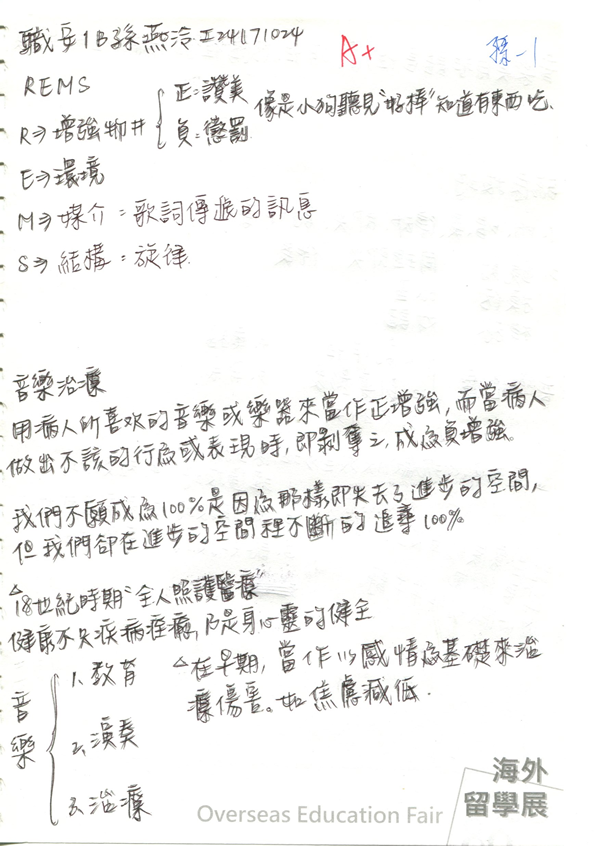 職安1B孫燕泠I24171024
A+
孫-1
REMS
R⇒增強物 正=讚美 像是小狗聽見"好棒"知道有東西吃.
負=懲罰
E⇒環境
M⇒媒介=歌詞傳遞的訊息
S⇒結構=旋律
音樂治療
用病人所喜欢的音樂或樂器來當作正增強,而當病人
做出不該的行為或表現時,即剝奪之,成為負增強。
我們不願成為100%是因為那樣即失去了進步的空間,
但我們卻在進步的空間裡不斷的追尋100%
△18世紀時期"全人照護醫療"
健康不只疾病痊癒,乃是身心靈的健全
音樂
1.教育
2.演奏
3.治療
△在早期,當作以感情為基礎來治
療傷害。如焦慮減低.
海外
留學展
Overseas Education Fair